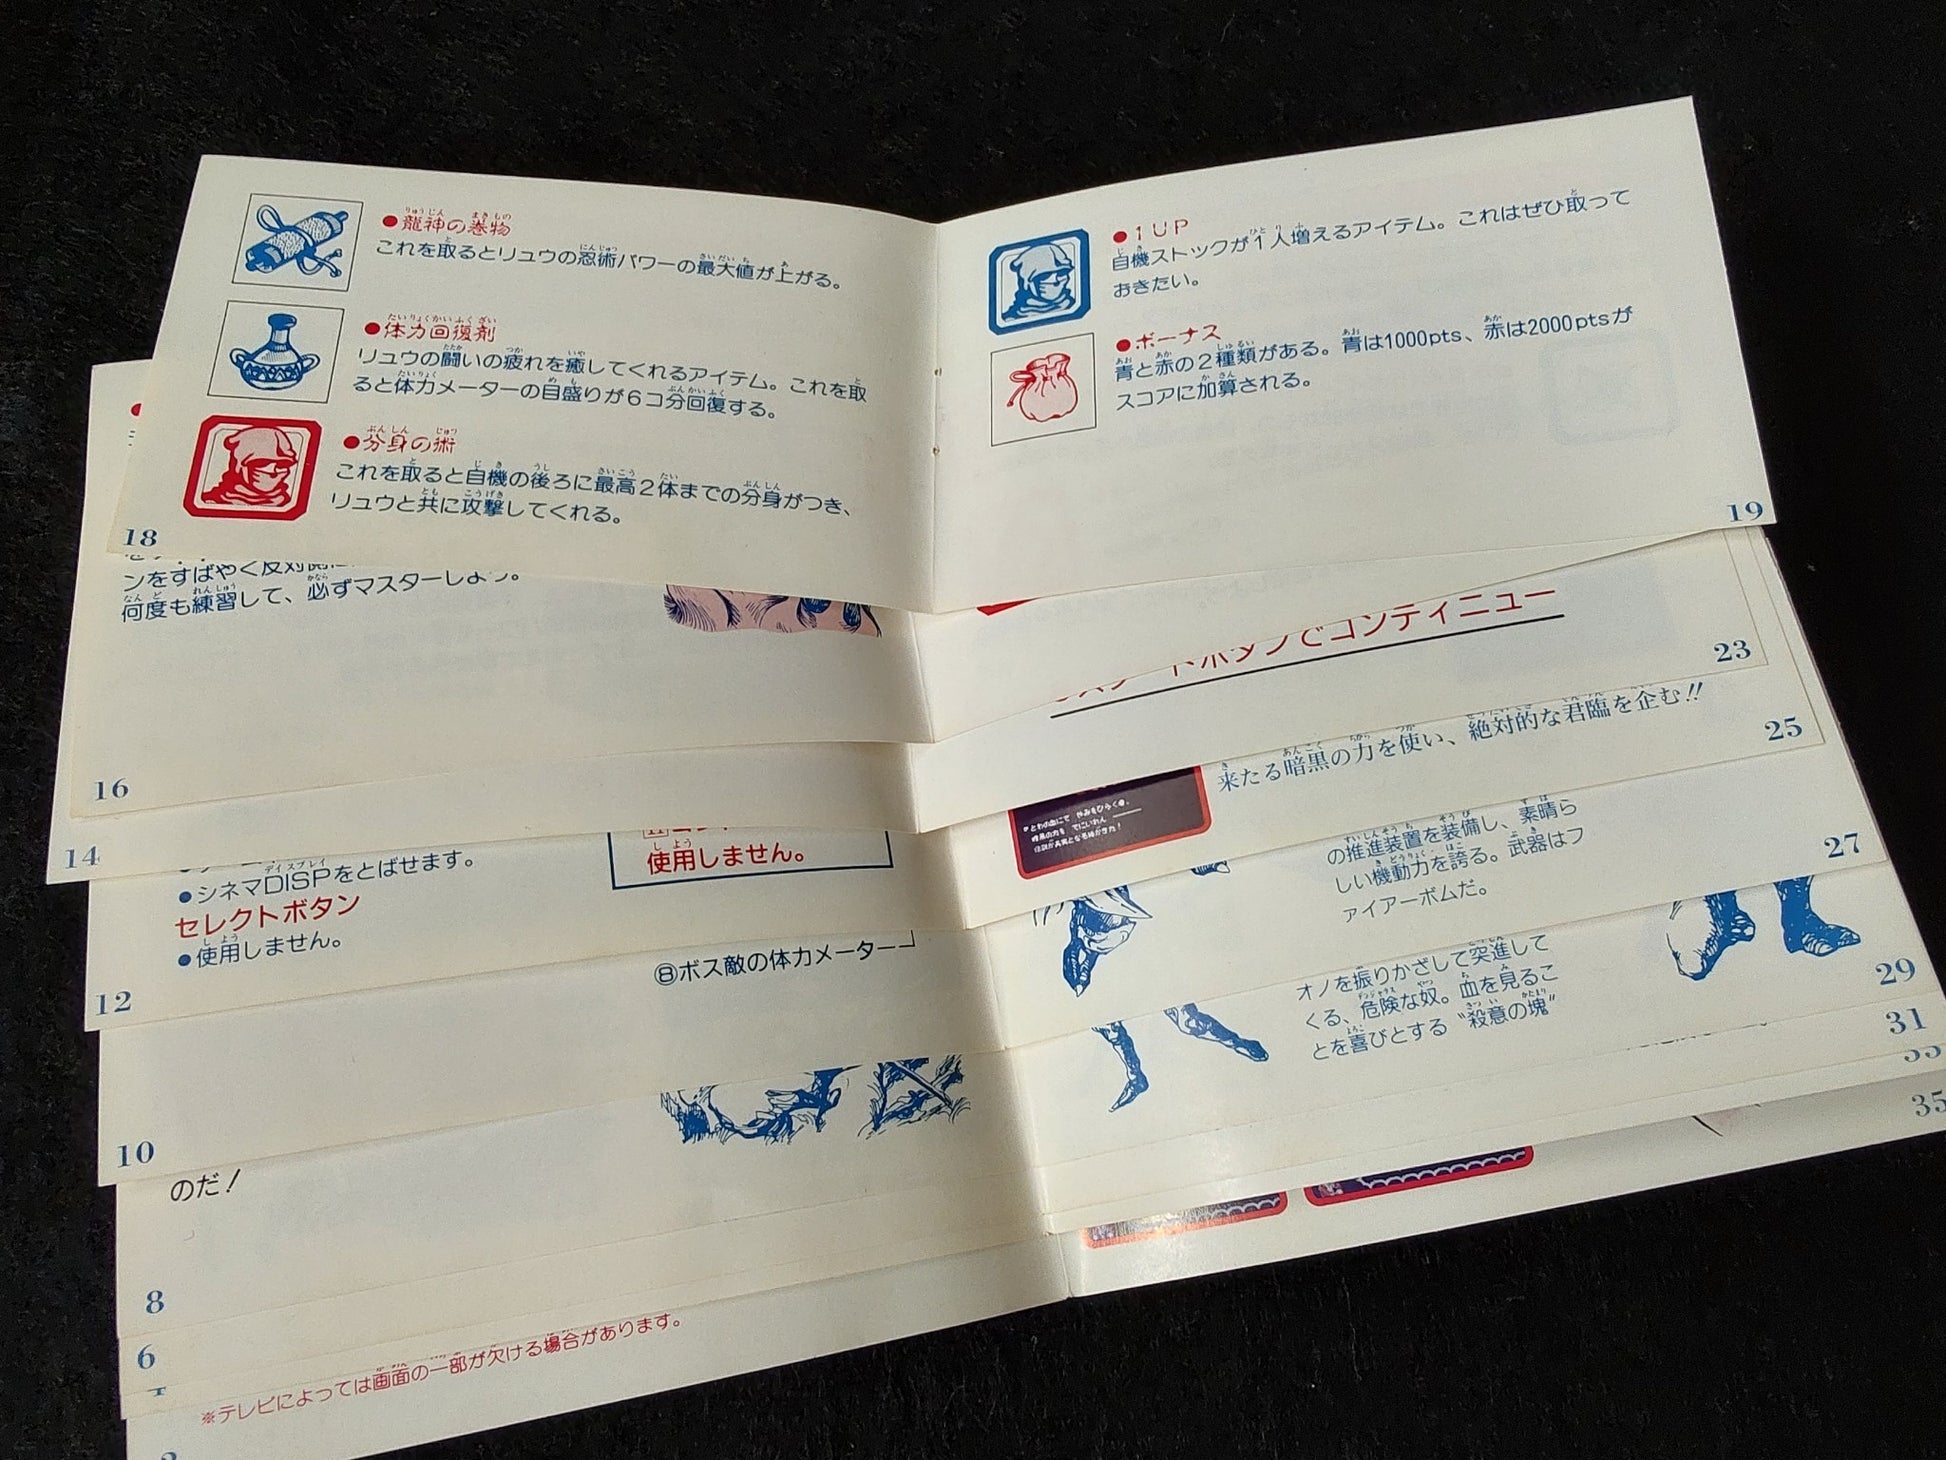 ●龍神の巻物
これを取るとリュウの忍術パワーの最大値が上がる。
●体力回復剤
リュウの闘いの疲れを癒してくれるアイテム。これを取
ると体力メーターの目盛りが6コ分回復する。
●分身の術
これを取ると自機の後ろに最高2体までの分身がつき、
リュウと共に攻撃してくれる。
18
●1UP
自機ストックが1人増えるアイテム。これはぜひ取って
おきたい。
●ボーナス
青と赤の2種類がある。青は1000pts、赤は2000ptsが
スコアに加算される。
19
ンをすばやく反対側に
何度も練習して、必ずマスターしよう。
16
14
●シネマDISPをとばせます。
セレクトボタン
●使用しません。
使用しません。
12
⑧ボス敵の体力メーター
10
のだ!
8
6
※テレビによっては画面の一部が欠ける場合があります。
タンでコンティニュー
23
来たる暗黒の力を使い、絶対的な君臨を企む!!
25
の推進装置を装備し、素晴ら
しい機動力を誇る。武器はフ
ァイアーボムだ。
27
オノを振りかざして突進して
くる、危険な奴。血を見るこ
とを喜びとする“殺意の塊”
29
31
33
35